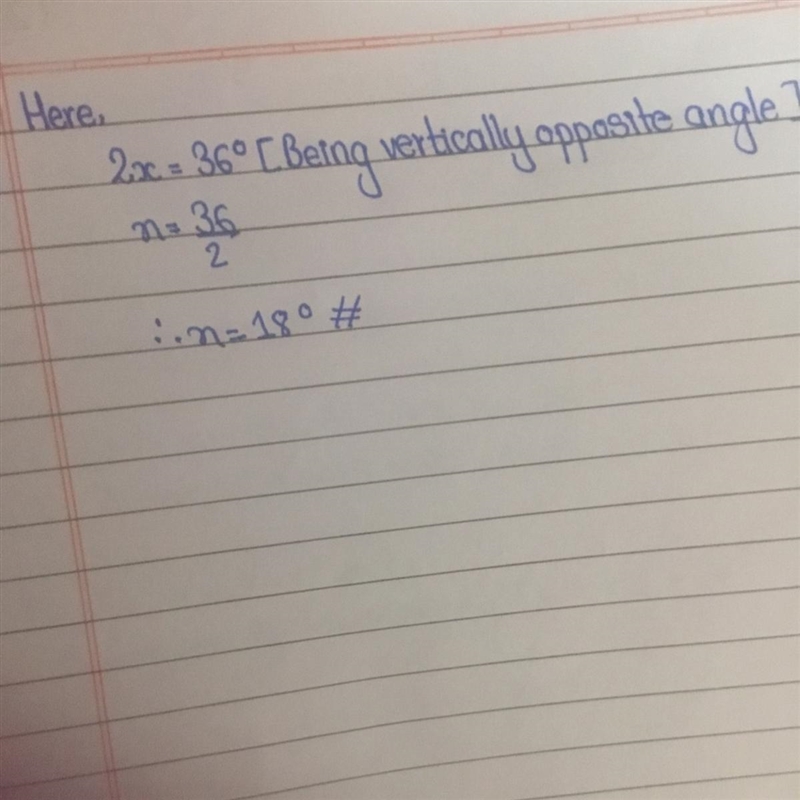 Here,
2x = 36° [Being vertically opposite angle]
x = 36/2
∴ x = 18° #